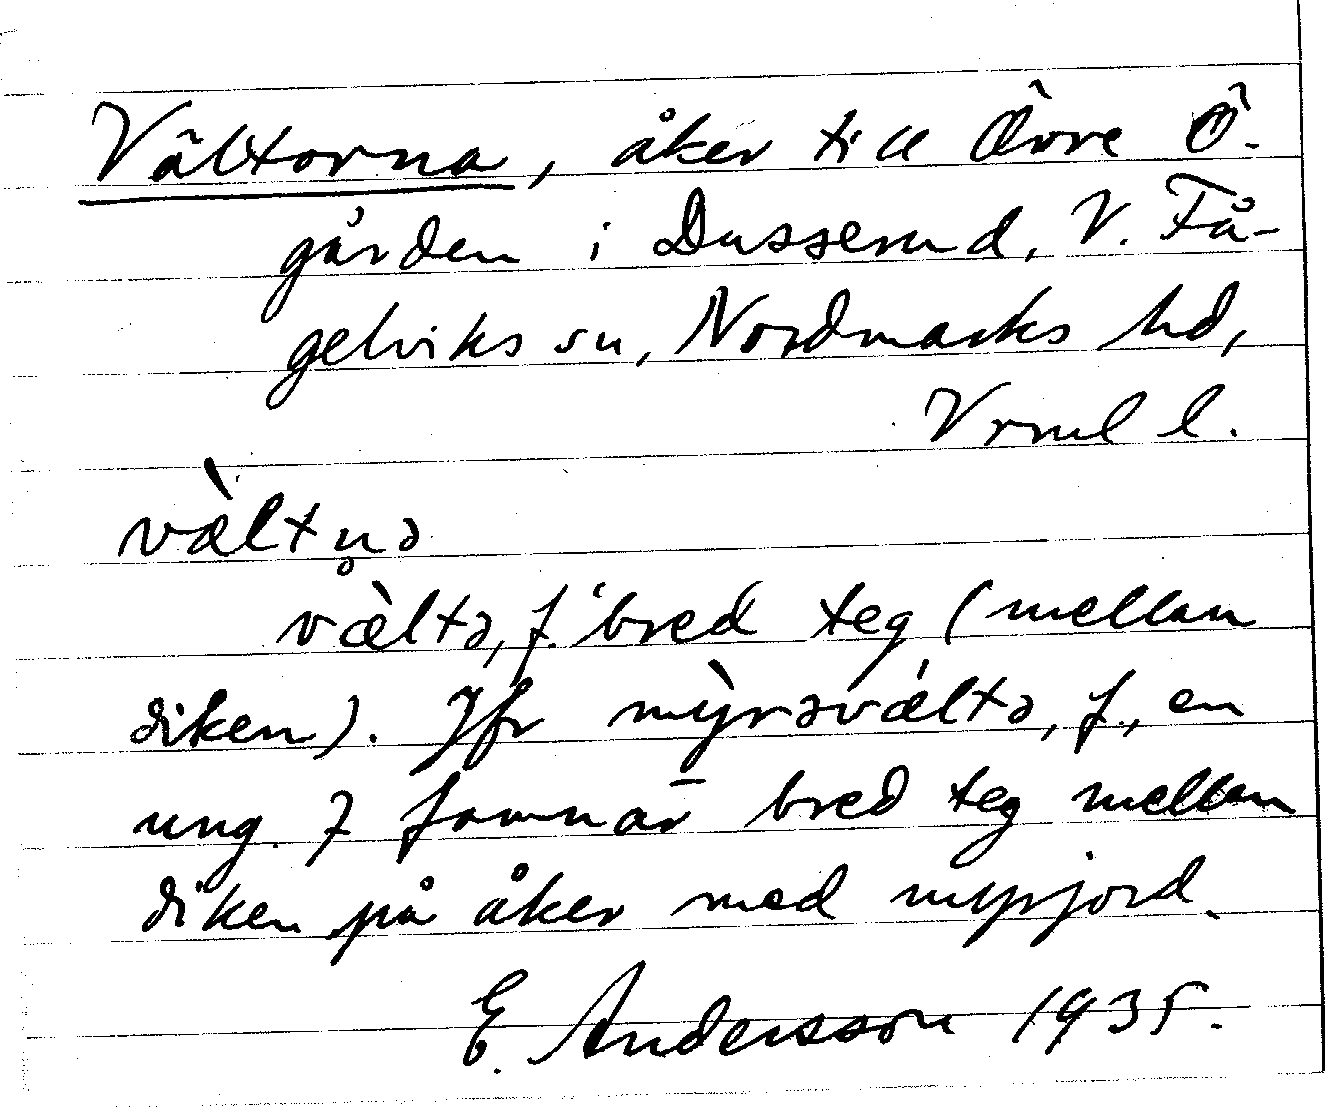 Vältorna, åker till Övre Ö-
gården i Dusserud, V. Få-
gelviks sn, Nordmarks hd,
Vrml l.
væ̀ltn̥ə
væ̀ltə, f. 'bred teg (mellan
diken). Jfr my̌rəvǽltə, f., en
ung. 7 famnar bred teg mellan
diken på åker med myrjord.
E. Andersson 1935.